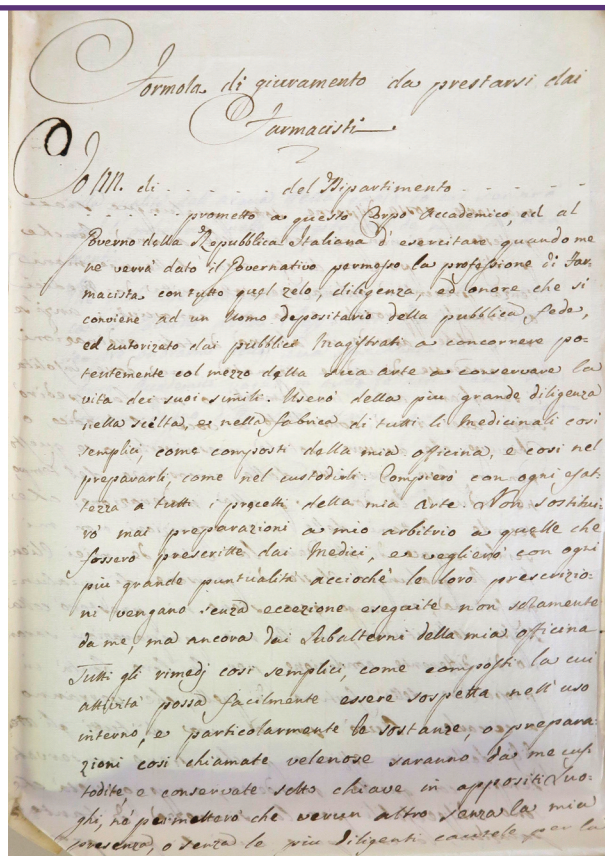 Formola di giuramento da prestarsi dai
Farmacisti
Io NN. di . . . . . del Dipartimento . . . . .
. . . . . prometto a questo Corpo Accademico, ed al
Governo della Repubblica Italiana d'esercitare, quando me
ne verrà dato il Governativo permesso la professione di Far-
macista con tutto quel zelo, diligenza, ed onore che si
conviene ad un Uomo depositario della pubblica fede,
ed autorizato dai pubblici Magistrati a concorrere po-
tentemente col mezzo della sua arte a conservare la
vita dei suoi simili. Userò della più grande diligenza
nella scelta, e nella fabrica di tutti li Medicinali così
semplici, come composti della mia officina, e così nel
prepararli, come nel custodirli. Compierò con ogni esat-
tezza a tutti i precetti della mia arte. Non sostitui-
rò mai preparazioni a mio arbitrio a quelle che
fossero prescritte dai Medici, e veglierò con ogni
più grande puntualità acciochè le loro prescrizio-
ni vengano senza eccezione eseguite non solamente
da me, ma ancora dai Subalterni della mia officina.
Tutti gli rimedj così semplici, come composti la cui
attività possa facilmente essere sospetta nell'uso
interno, e particolarmente le sostanze, o prepara-
zioni così chiamate velenose saranno da me cus-
todite e conservate sotto chiave in appositi Luo-
ghi, nè permetterò che verun altro senza la mia
presenza, o senza le più diligenti cautele per la